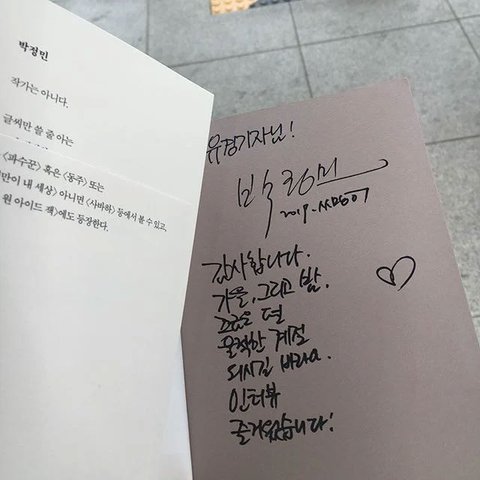 박정민
작가는 아니다.
글씨만 쓸 줄 아는
〈파수꾼〉 혹은 〈동주〉 또는
만이 내 세상〉 아니면 〈사바하〉 등에서 볼 수 있고
원 아이드 잭〉에도 등장한다.
유경기자님!
박정민
2019.
감사합니다.
가을, 그리고 밤.
조금은 덜
울적한 계절
되시길 바라요.
인터뷰
즐거웠습니다!